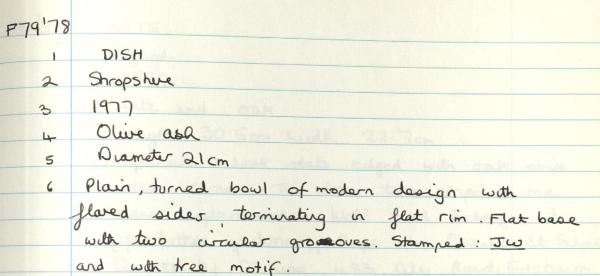 P79'78
1 DISH
2 Shropshire
3 1977
4 Olive ash
5 Diameter 21cm
6 Plain, turned bowl of modern design with
flared sides terminating in flat rim. Flat base
with two circular grooves. Stamped: JW
and with tree motif.